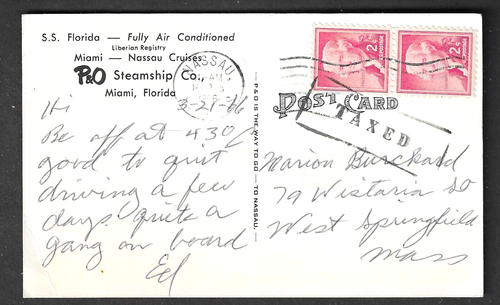 S.S. Florida — Fully Air Conditioned
Liberian Registry
Miami — Nassau Cruises
P&O Steamship Co.,
Miami, Florida
NASSAU.
AM
3-21-66
Hi
Be off at 430/
good to quit
driving a few
days. quite a
gang on board
Ed
P&O IS THE WAY TO GO — TO NASSAU.
2¢
2¢
POST CARD
TAXED
Marion Burckard
79 Wistaria So
West Springfield
Mass